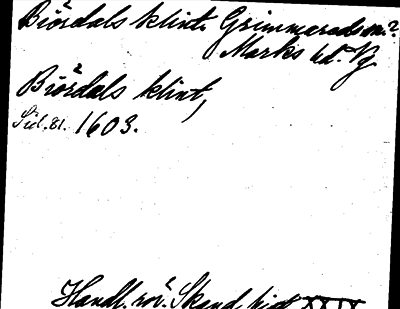 Biördals klint. Grimmaredssn.?
Marks hd. Vg
Biördals klint,
Sid. 81. 1603.
Handl. rör. Skand. hist XXIX